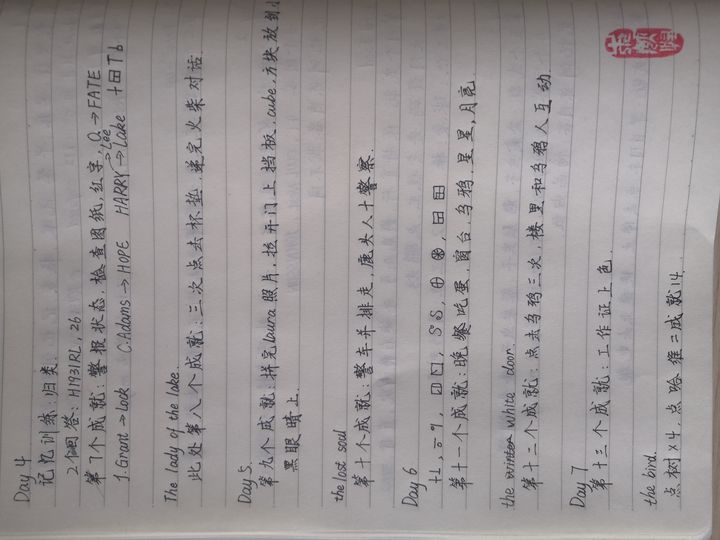 Day 4
记忆训练:归类.
2个问答:H1931RL,26
第7个成就:警报状态,检查图纸,红字,
J.Grant→Lock C.Adams→HOPE HARRY→Lake
Lee
→FATE
The lady of the lake.
此处第八个成就:三次点击杯垫.递完火柴对话.
Day 5.
第九个成就:拼完laura照片,拉开门上挡板.cube.方块放到
黑眼睛上.
the lost soul
第十个成就:警车并排走,鹿头人+警察.
Day 6
第十一个成就:晚餐吃蛋,窗台.乌鸦.星星,月亮
the white door.
第十二个成就:点击乌鸦三次,楼里和乌鸦人互动.
Day 7
第十三个成就:工作证上色.
the bird.
点树×4.点哈维=成就14.